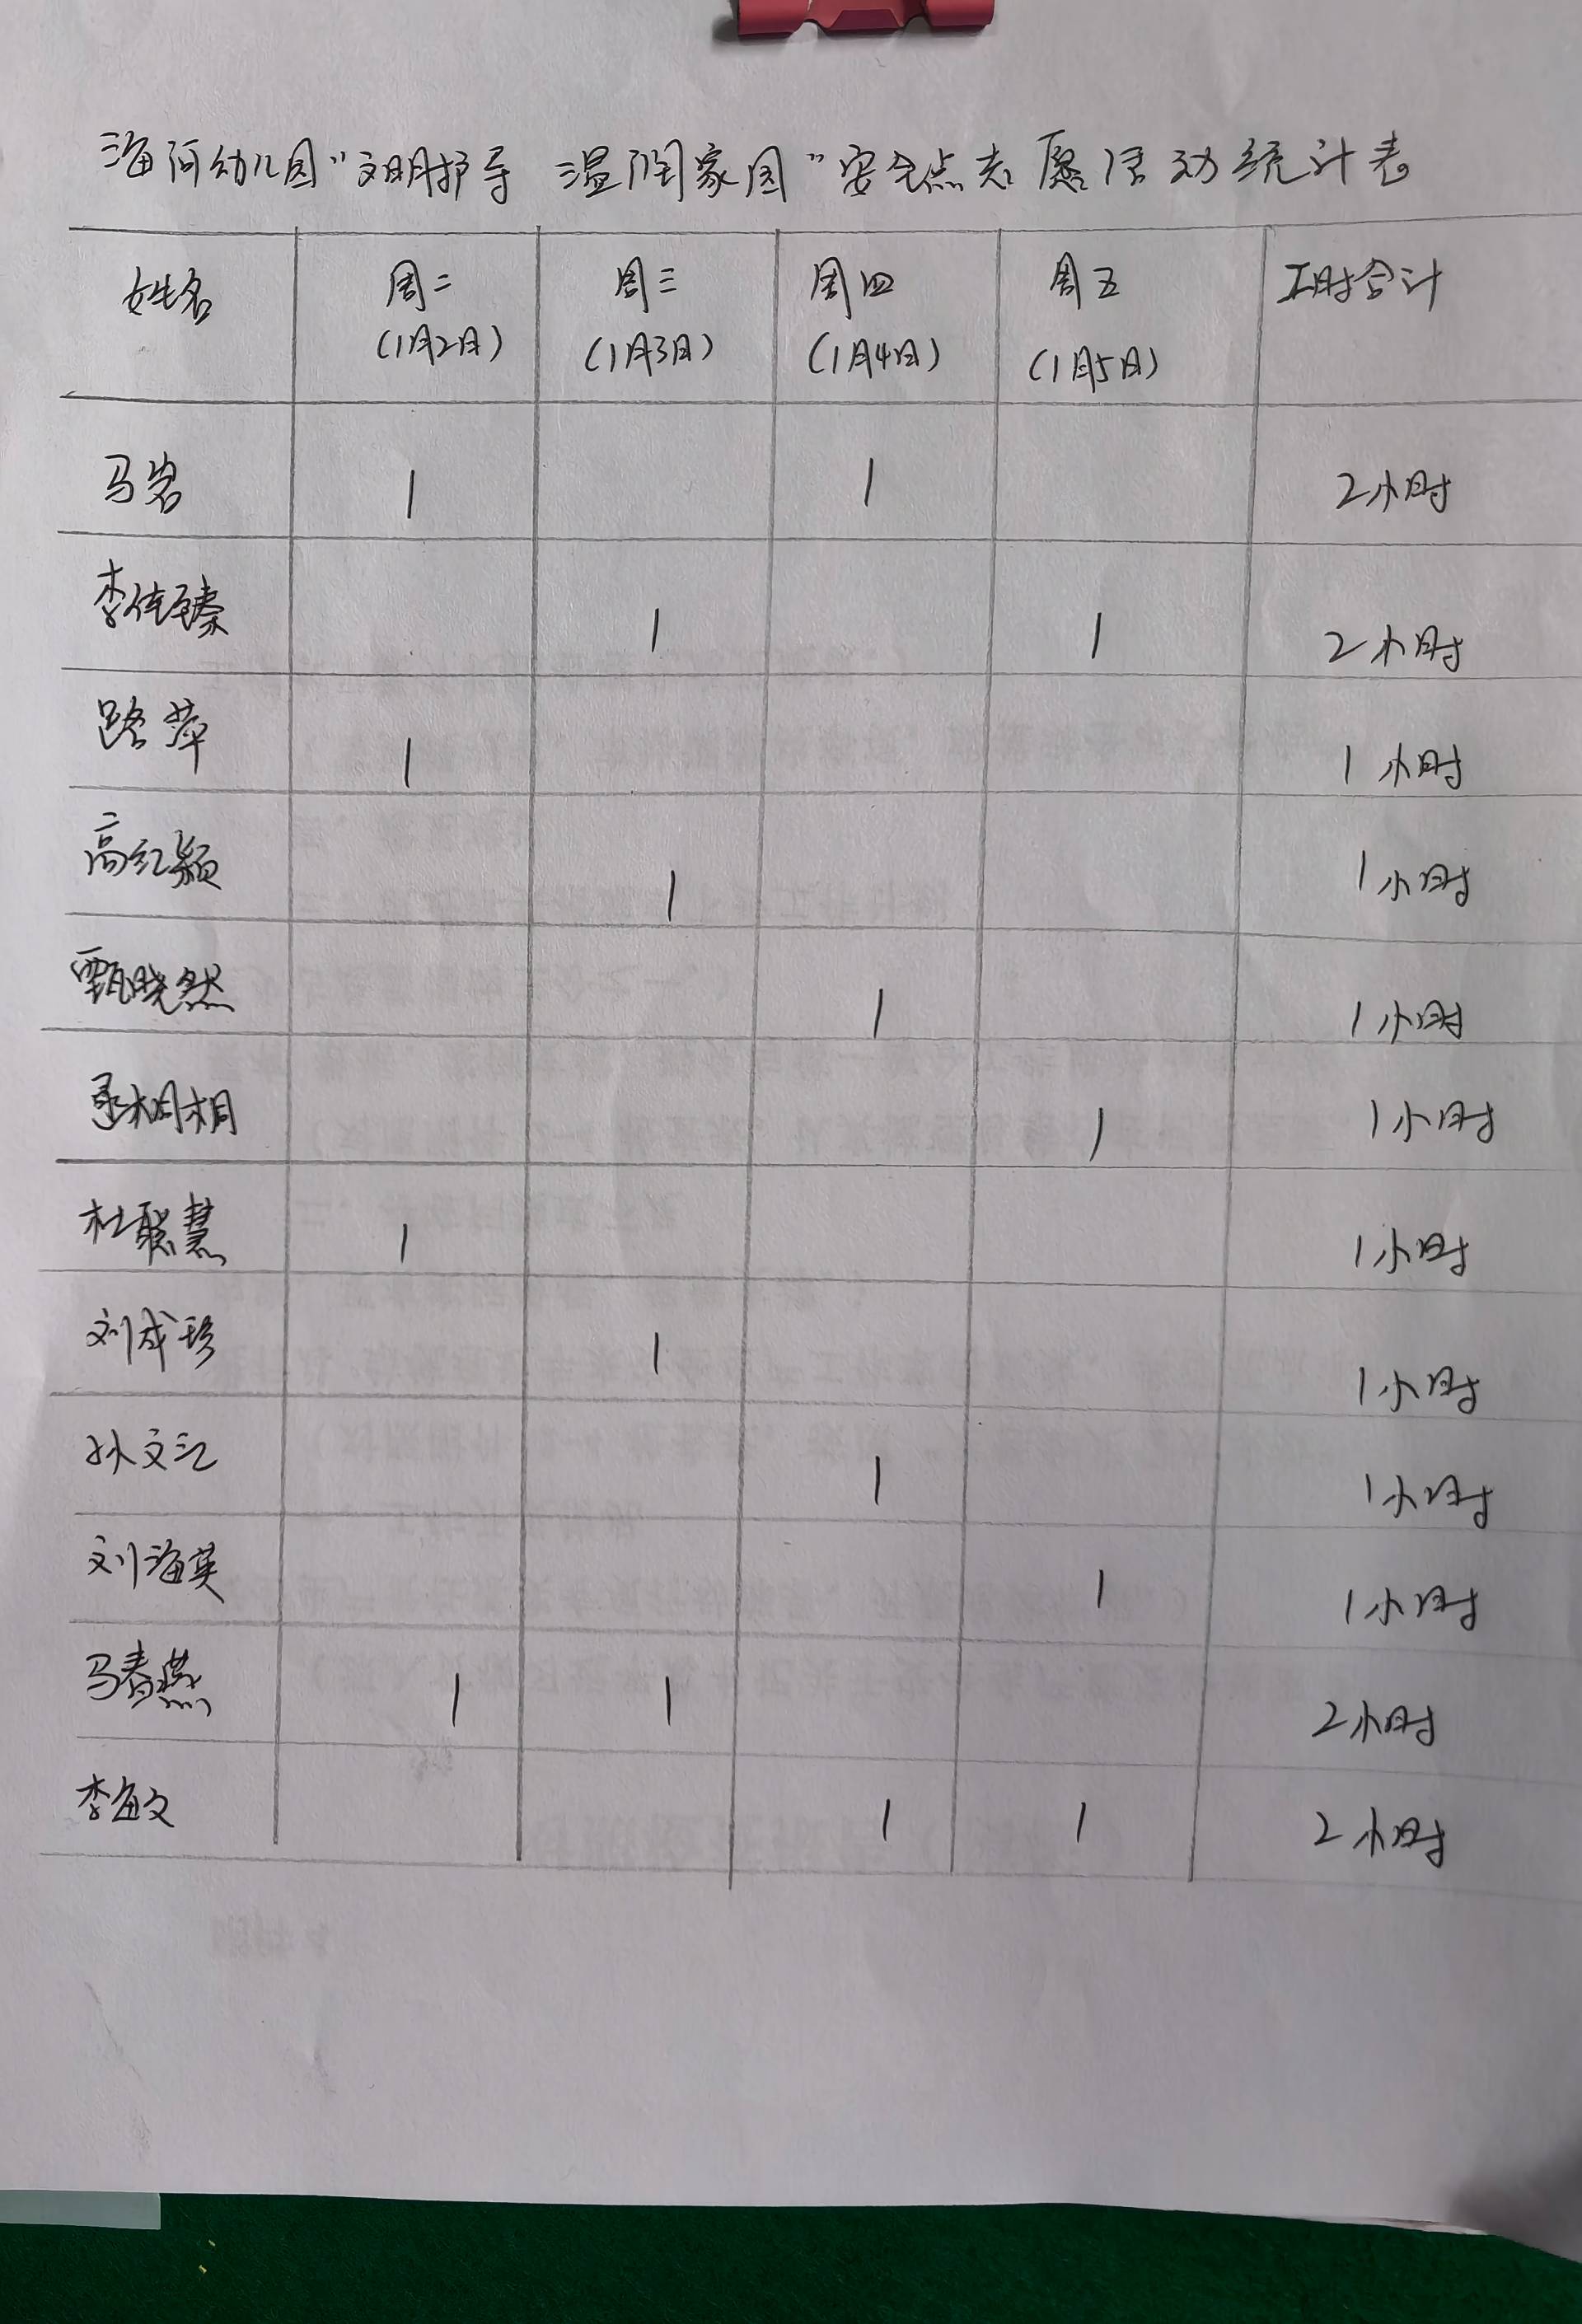 海河幼儿园“文明护导 温润家园”安全点志愿活动统计表
姓名 周二 周三 周四 周五 工时合计
(1月2日) (1月3日) (1月4日) (1月5日)
马岩 1 1 2小时
李佳臻 1 1 2小时
路萍 1 1小时
高红颖 1 1小时
甄晓然 1 1小时
1 1小时
杜聪慧 1 1小时
刘成珍 1 1小时
孙文江 1 1小时
刘海英 1 1小时
马春燕 1 1 2小时
李海文 1 1 2小时